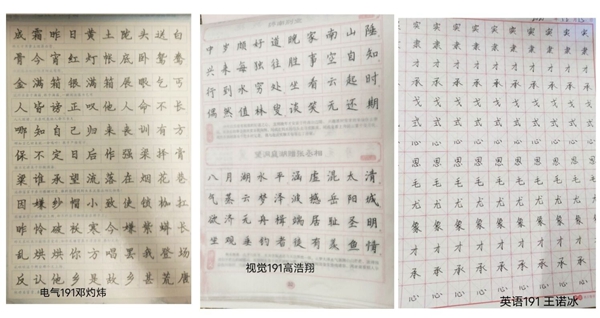 成霜昨日黄土陇头送白
骨今宵红灯帐底卧鸳鸯
金满箱银满箱展眼乞丐
人皆谤正叹他人命不长
哪知自己归来丧训有方
保不定日后作强梁择膏
粱谁承望流落在烟花巷
因嫌纱帽小致使锁枷扛
昨怜破袄寒今嫌紫蟒长
乱烘烘你方唱罢我登场
反认他乡是故乡甚荒唐
电气191邓灼炜
中岁颇好道晚家南山陲
兴来每独往胜事空自知
行到水穷处坐看云起时
偶然值林叟谈笑无还期
八月湖水平涵虚混太清
气蒸云梦泽波撼岳阳城
欲济无舟楫端居耻圣明
坐观垂钓者徒有羡鱼情
视觉191高浩翔
实实实实实实实
隶隶隶隶隶隶隶
才才才才才才才
承承承承承承承
戈戈戈戈戈戈戈
式式式式式式式
心心心心心心心
恩恩恩恩恩恩恩
毛毛毛毛毛毛毛
尤尤尤尤尤尤尤
象象象象象象象
才才才才才才才
承承承承承承承
心心心心心心心
英语191 王诺冰